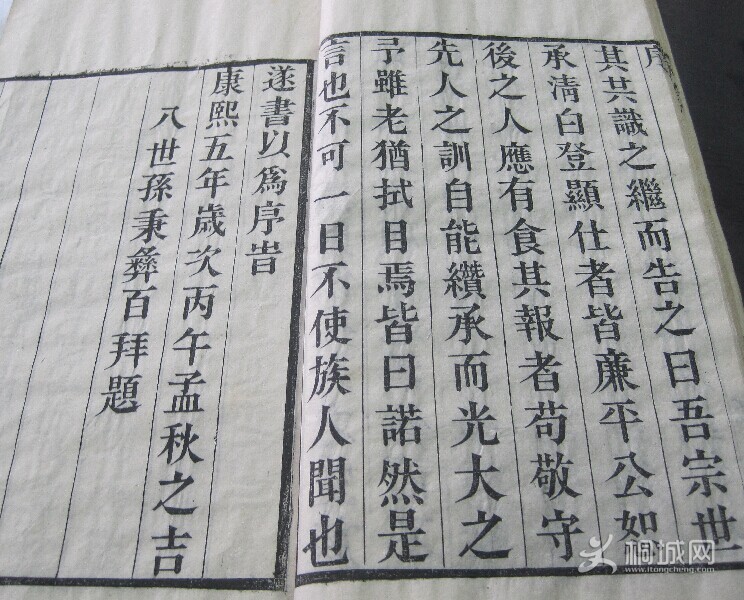 序
其共識之繼而告之曰吾宗世
承清白登顯仕者皆廉平公如
後之人應有食其報者苟敬守
先人之訓自能纘承而光大之
予雖老猶拭目焉皆曰諾然是
言也不可一日不使族人聞也
遂書以為序旹
康熙五年歲次丙午孟秋之吉
八世孫秉彝百拜題
桐城网
www.itongcheng.com